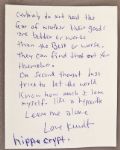 certainly do not need the
fear of whether
are better or worse
than the Best or worse.
They can find that out for
themselves.
On second thought lets
try to let the world
know how much i love
myself. like a hypocrite
Leave me alone
Love Kurdt
hippocrypt.